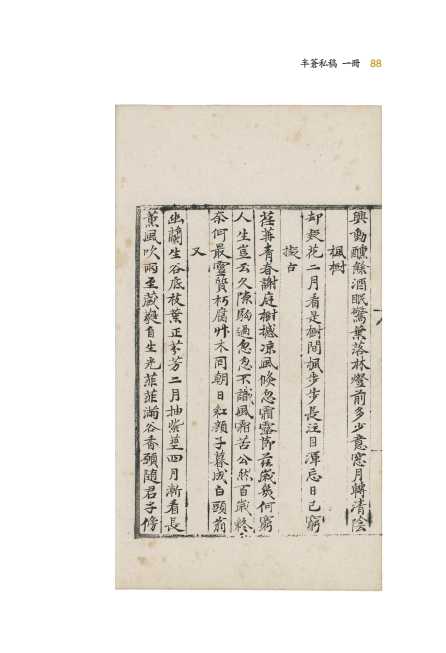 半蒼私稿 一冊 88
興動醺餘酒眠驚葉落林燈前多少意窓月轉清陰
楓樹
却疑花二月看是樹間楓步步長注目渾忘日已窮
擬古
荏苒青春謝庭樹撼凉風倏忽霜露節茲歲幾何窮
人生豈云久隙駒過忽忽不識風霜苦公然百歲終
奈何最靈質朽腐艸木同朝日紅顏子暮成白頭翁
又
幽蘭生谷底枝葉正芬芳二月抽紫莖四月漸看長
薰風吹雨至葳蕤自生光菲菲滿谷香願隨君子傍